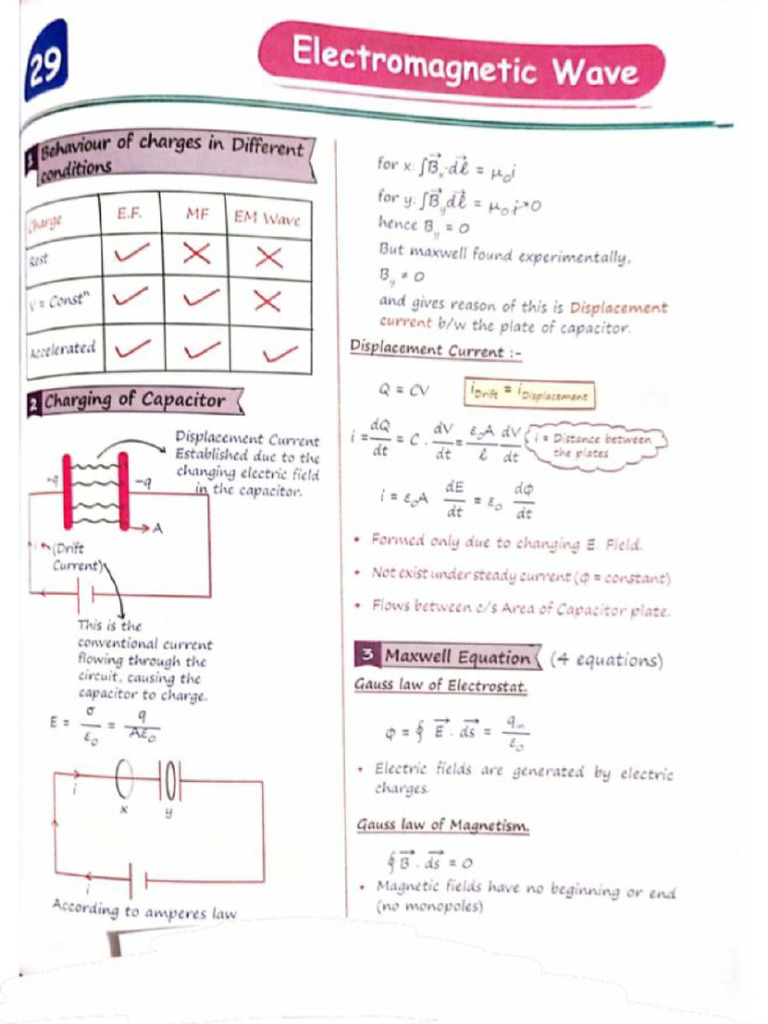 29
Electromagnetic Wave
1 Behaviour of charges in Different
conditions
Charge E.F. MF EM Wave
Rest ✓ ✗ ✗
V = Constⁿ ✓ ✓ ✗
Accelerated ✓ ✓ ✓
2 Charging of Capacitor
Displacement Current
Established due to the
changing electric field
in the capacitor.
+q -q
A
i (Drift
Current)
This is the
conventional current
flowing through the
circuit, causing the
capacitor to charge.
E = σ/ε₀ = q/Aε₀
i x y
i
According to amperes law
for x: ∫B⃗ₓ·dl⃗ = μ₀i
for y: ∫B⃗ᵧdl⃗ = μ₀ i→0
hence Bᵧ = 0
But maxwell found experimentally,
Bᵧ ≠ 0
and gives reason of this is Displacement
current b/w the plate of capacitor.
Displacement Current :-
Q = CV i_Drift = i_Displacement
i = dQ/dt = C · dV/dt = ε₀A/l dV/dt
= Distance between
the plates
i = ε₀A dE/dt = ε₀ dφ/dt
• Formed only due to changing E. Field.
• Not exist under steady current (φ = constant)
• Flows between c/s Area of Capacitor plate.
3 Maxwell Equation (4 equations)
Gauss law of Electrostat.
φ = ∮ E⃗ . ds⃗ = q_in/ε₀
• Electric fields are generated by electric
charges.
Gauss law of Magnetism.
∮B⃗ . ds⃗ = 0
• Magnetic fields have no beginning or end
(no monopoles)